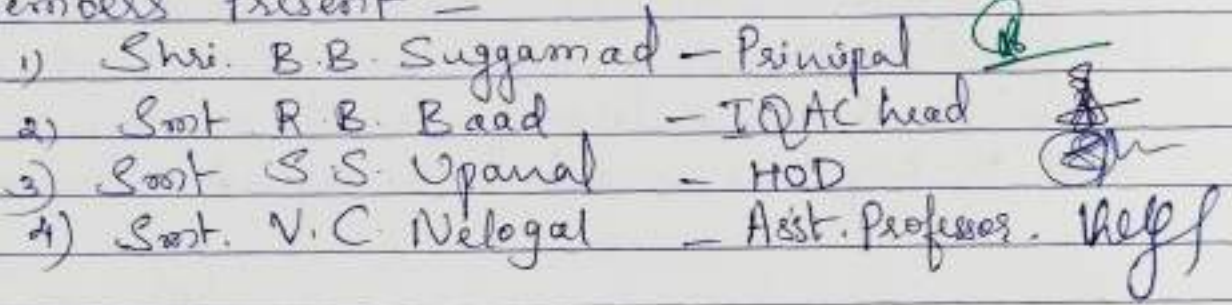 Members Present -
1) Shri. B.B. Suggamad - Prinipal
2) Smt R.B. Baad - IQAC head
3) Smt S.S. Upanal - HOD
4) Smt. V.C. Nelogal - Asst. Professor.